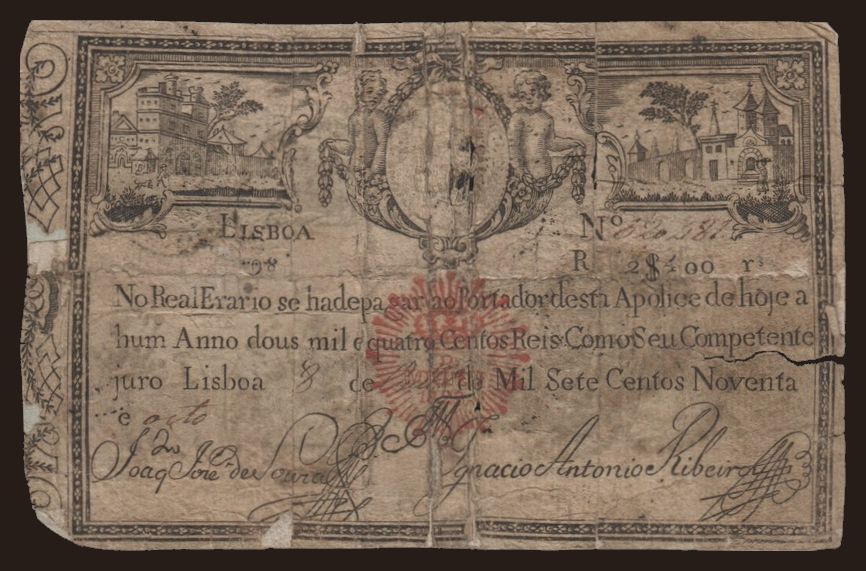 LISBOA Nº
98 R 2$400 rs
No Real Erario se hade pagar ao Portador desta Apolice de hoje a
hum Anno dous mil e quatro Centos Reis Com o Seu Competente
juro Lisboa 8 de de Mil Sete Centos Noventa
e octo
Joaq Joze de Souza Ignacio Antonio Ribeiro